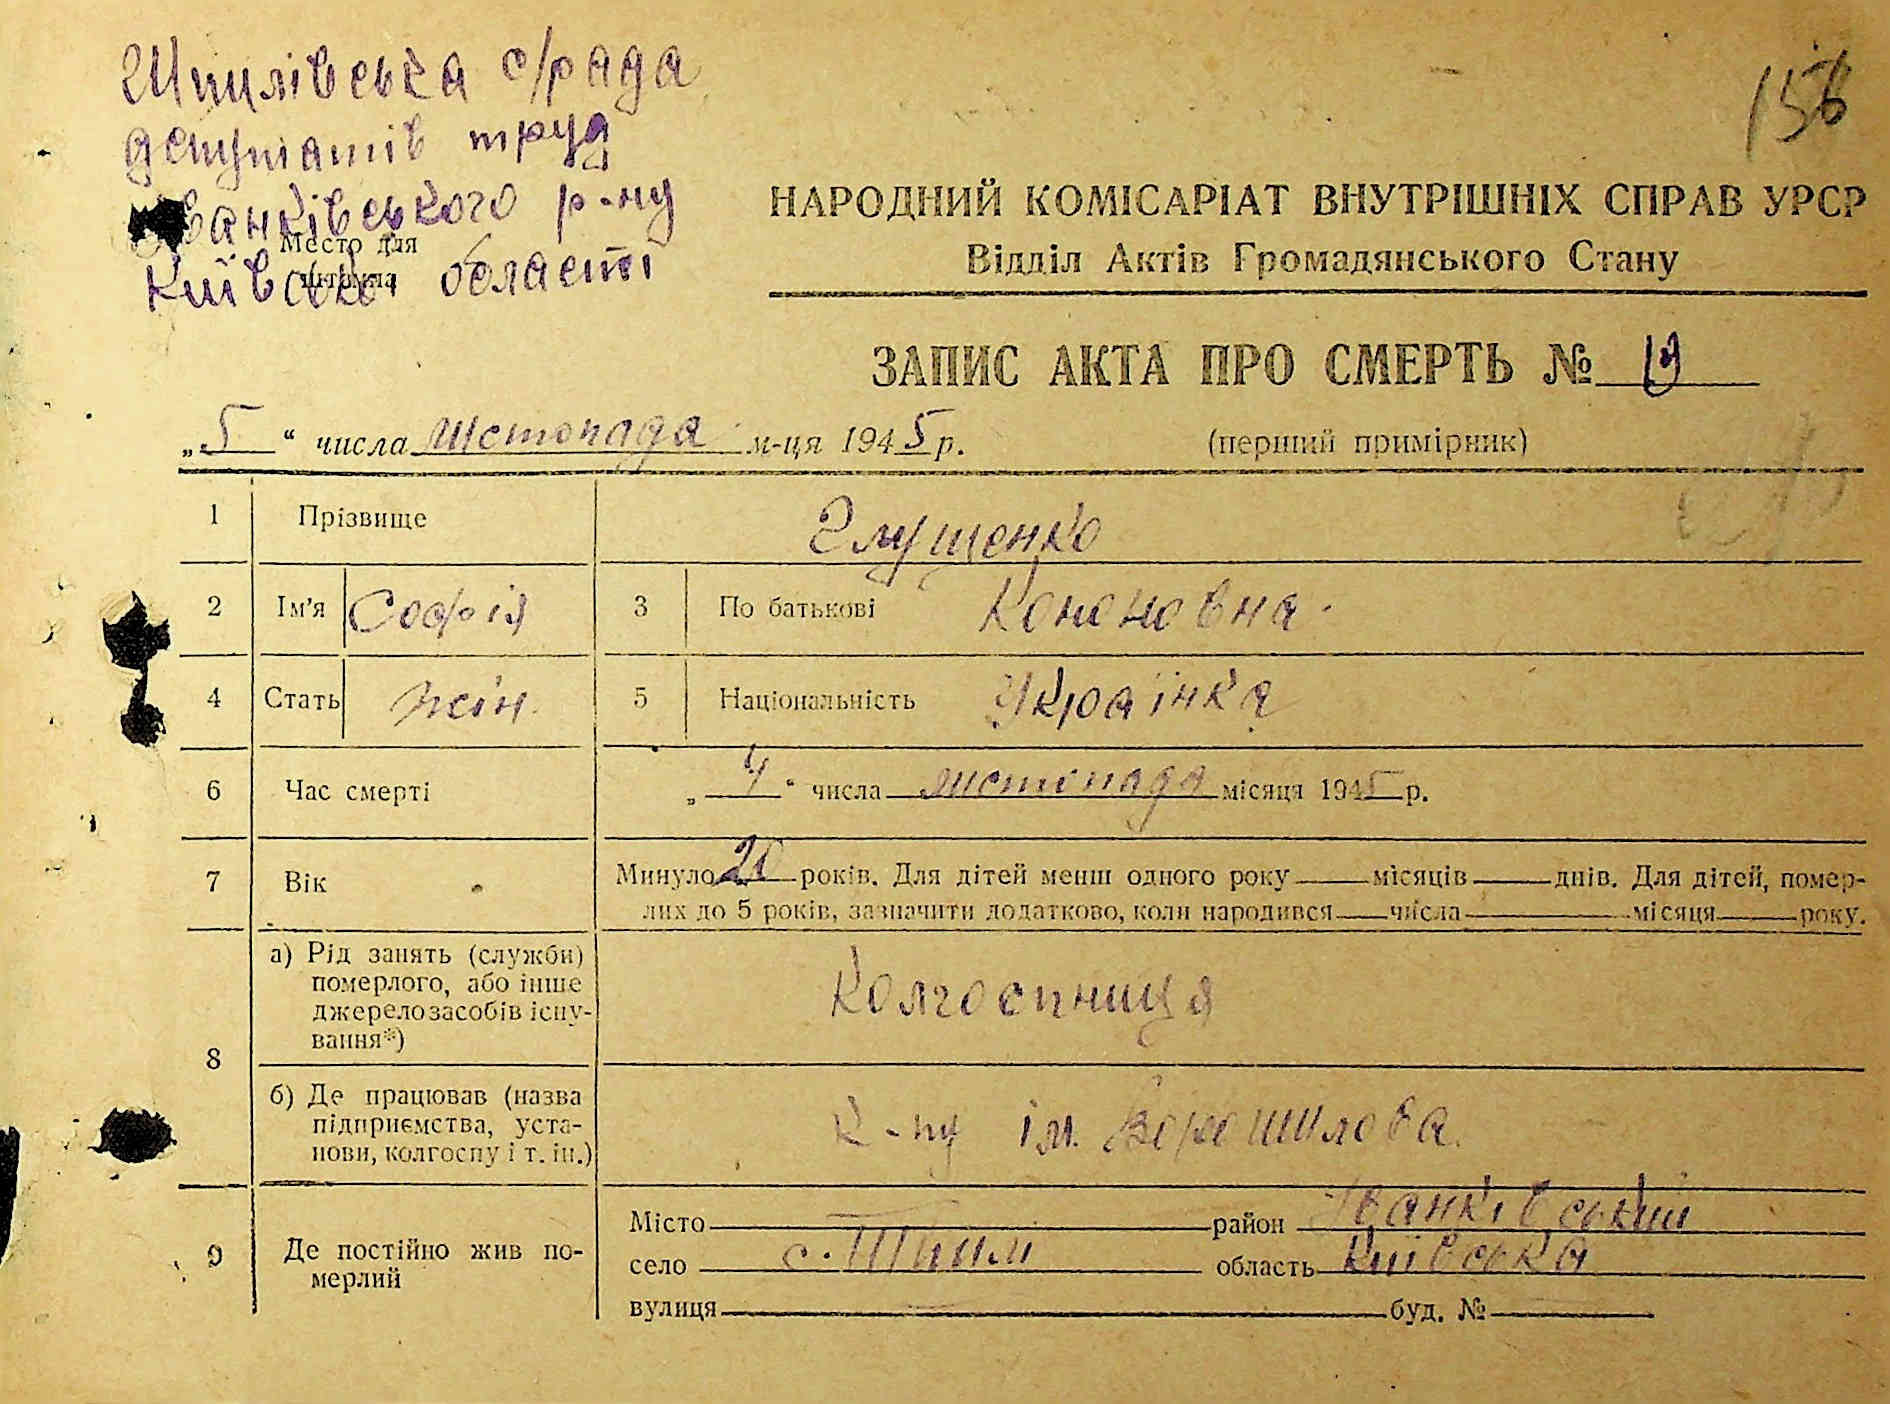 Шпилівська с/рада
депутатів труд
Іванківського р-ну
Київської області
Место для
штемпеля
156
НАРОДНИЙ КОМІСАРІАТ ВНУТРІШНІХ СПРАВ УРСР
Відділ Актів Громадянського Стану
ЗАПИС АКТА ПРО СМЕРТЬ № 19
„5“ числа листопада м-ця 1945 р.
(перший примірник)
1 Прізвище Глущенко
2 Ім’я Софія 3 По батькові Кононовна
4 Стать жін. 5 Національність Українка
6 Час смерті „4“ числа листопада місяця 1945 р.
7 Вік Минуло 20 років. Для дітей менш одного року місяців днів. Для дітей, помер-
лих до 5 років, зазначити додатково, коли народився числа місяця року.
8 а) Рід занять (служби)
померлого, або інше
джерело засобів існу-
вання*)
Колгоспниця
б) Де працював (назва
підприємства, уста-
нови, колгоспу і т. ін.)
к-пу ім. Ворошилова.
9 Де постійно жив по-
мерлий
Місто район Іванківський
село с. Шпилі область Київська
вулиця буд. №